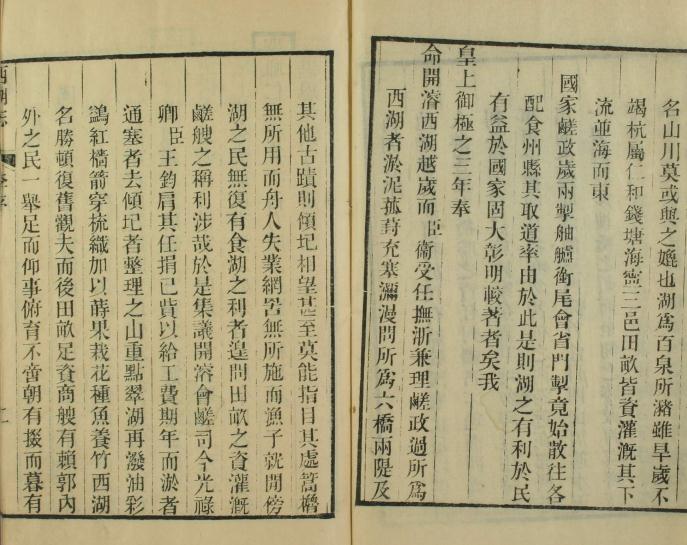 名山川莫或與之媲也湖爲百泉所瀦雖旱歲不
竭杭屬仁和錢塘海寧三邑田畝皆資灌漑其下
流並海而東
國家鹾政歲兩掣舳艫銜尾會省門掣竟始散往各
配食州縣其取道率由於此是則湖之有利於民
有益於國家固大彰明較著者矣我
皇上御極之三年奉
命開濬西湖越歲而臣衞受任撫浙兼理鹾政過所爲
西湖者淤泥菰葑充塞瀰漫問所爲六橋兩隄及
其他古蹟則傾圮相望甚至莫能指目其處篙櫓
無所用而舟人失業網罟無所施而漁子就閒傍
湖之民無復有食湖之利者遑問田畝之資灌漑
鹾艘之稱利涉哉於是集議開濬會鹾司今光祿
卿臣王鈞肩其任捐已貲以給工費期年而淤者
通塞者去傾圮者整理之山重點翠湖再潑油彩
鷁紅橋箭穿梳織加以蒔果栽花種魚養竹西湖
名勝頓復舊觀夫而後田畝足資商艘有賴郭內
外之民一舉足而仰事俯育不啻朝有掇而暮有
西湖志
二